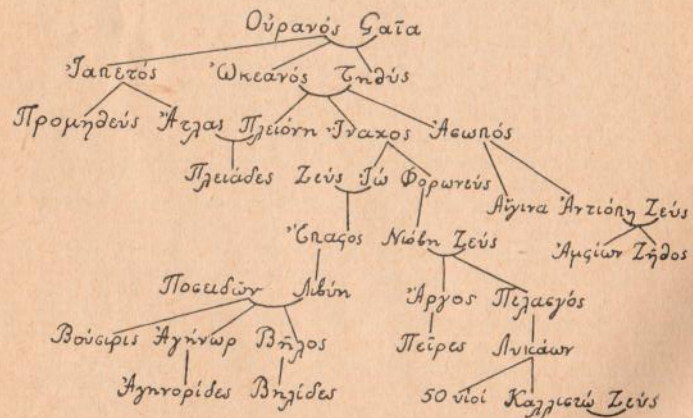 Οὐρανός Γαῖα
Ἰαπετός Ὠκεανός Τηθύς
Προμηθεύς Ἄτλας Πλειόνη Ἴναχος Ἀσωπός
Πλειάδες Ζεύς Ἰώ Φορωνεύς
Αἴγινα Ἀντιόπη Ζεύς
Ἔπαφος Νιόβη Ζεύς
Ἀμφίων Ζῆθος
Ποσειδῶν Λιβύη
Ἄργος Πελασγός
Βούσιρις Ἀγήνωρ Βῆλος
Πεῖρες Λυκάων
Ἀγηνορίδες Βηλίδες
50 υἱοί Καλλιστώ Ζεύς